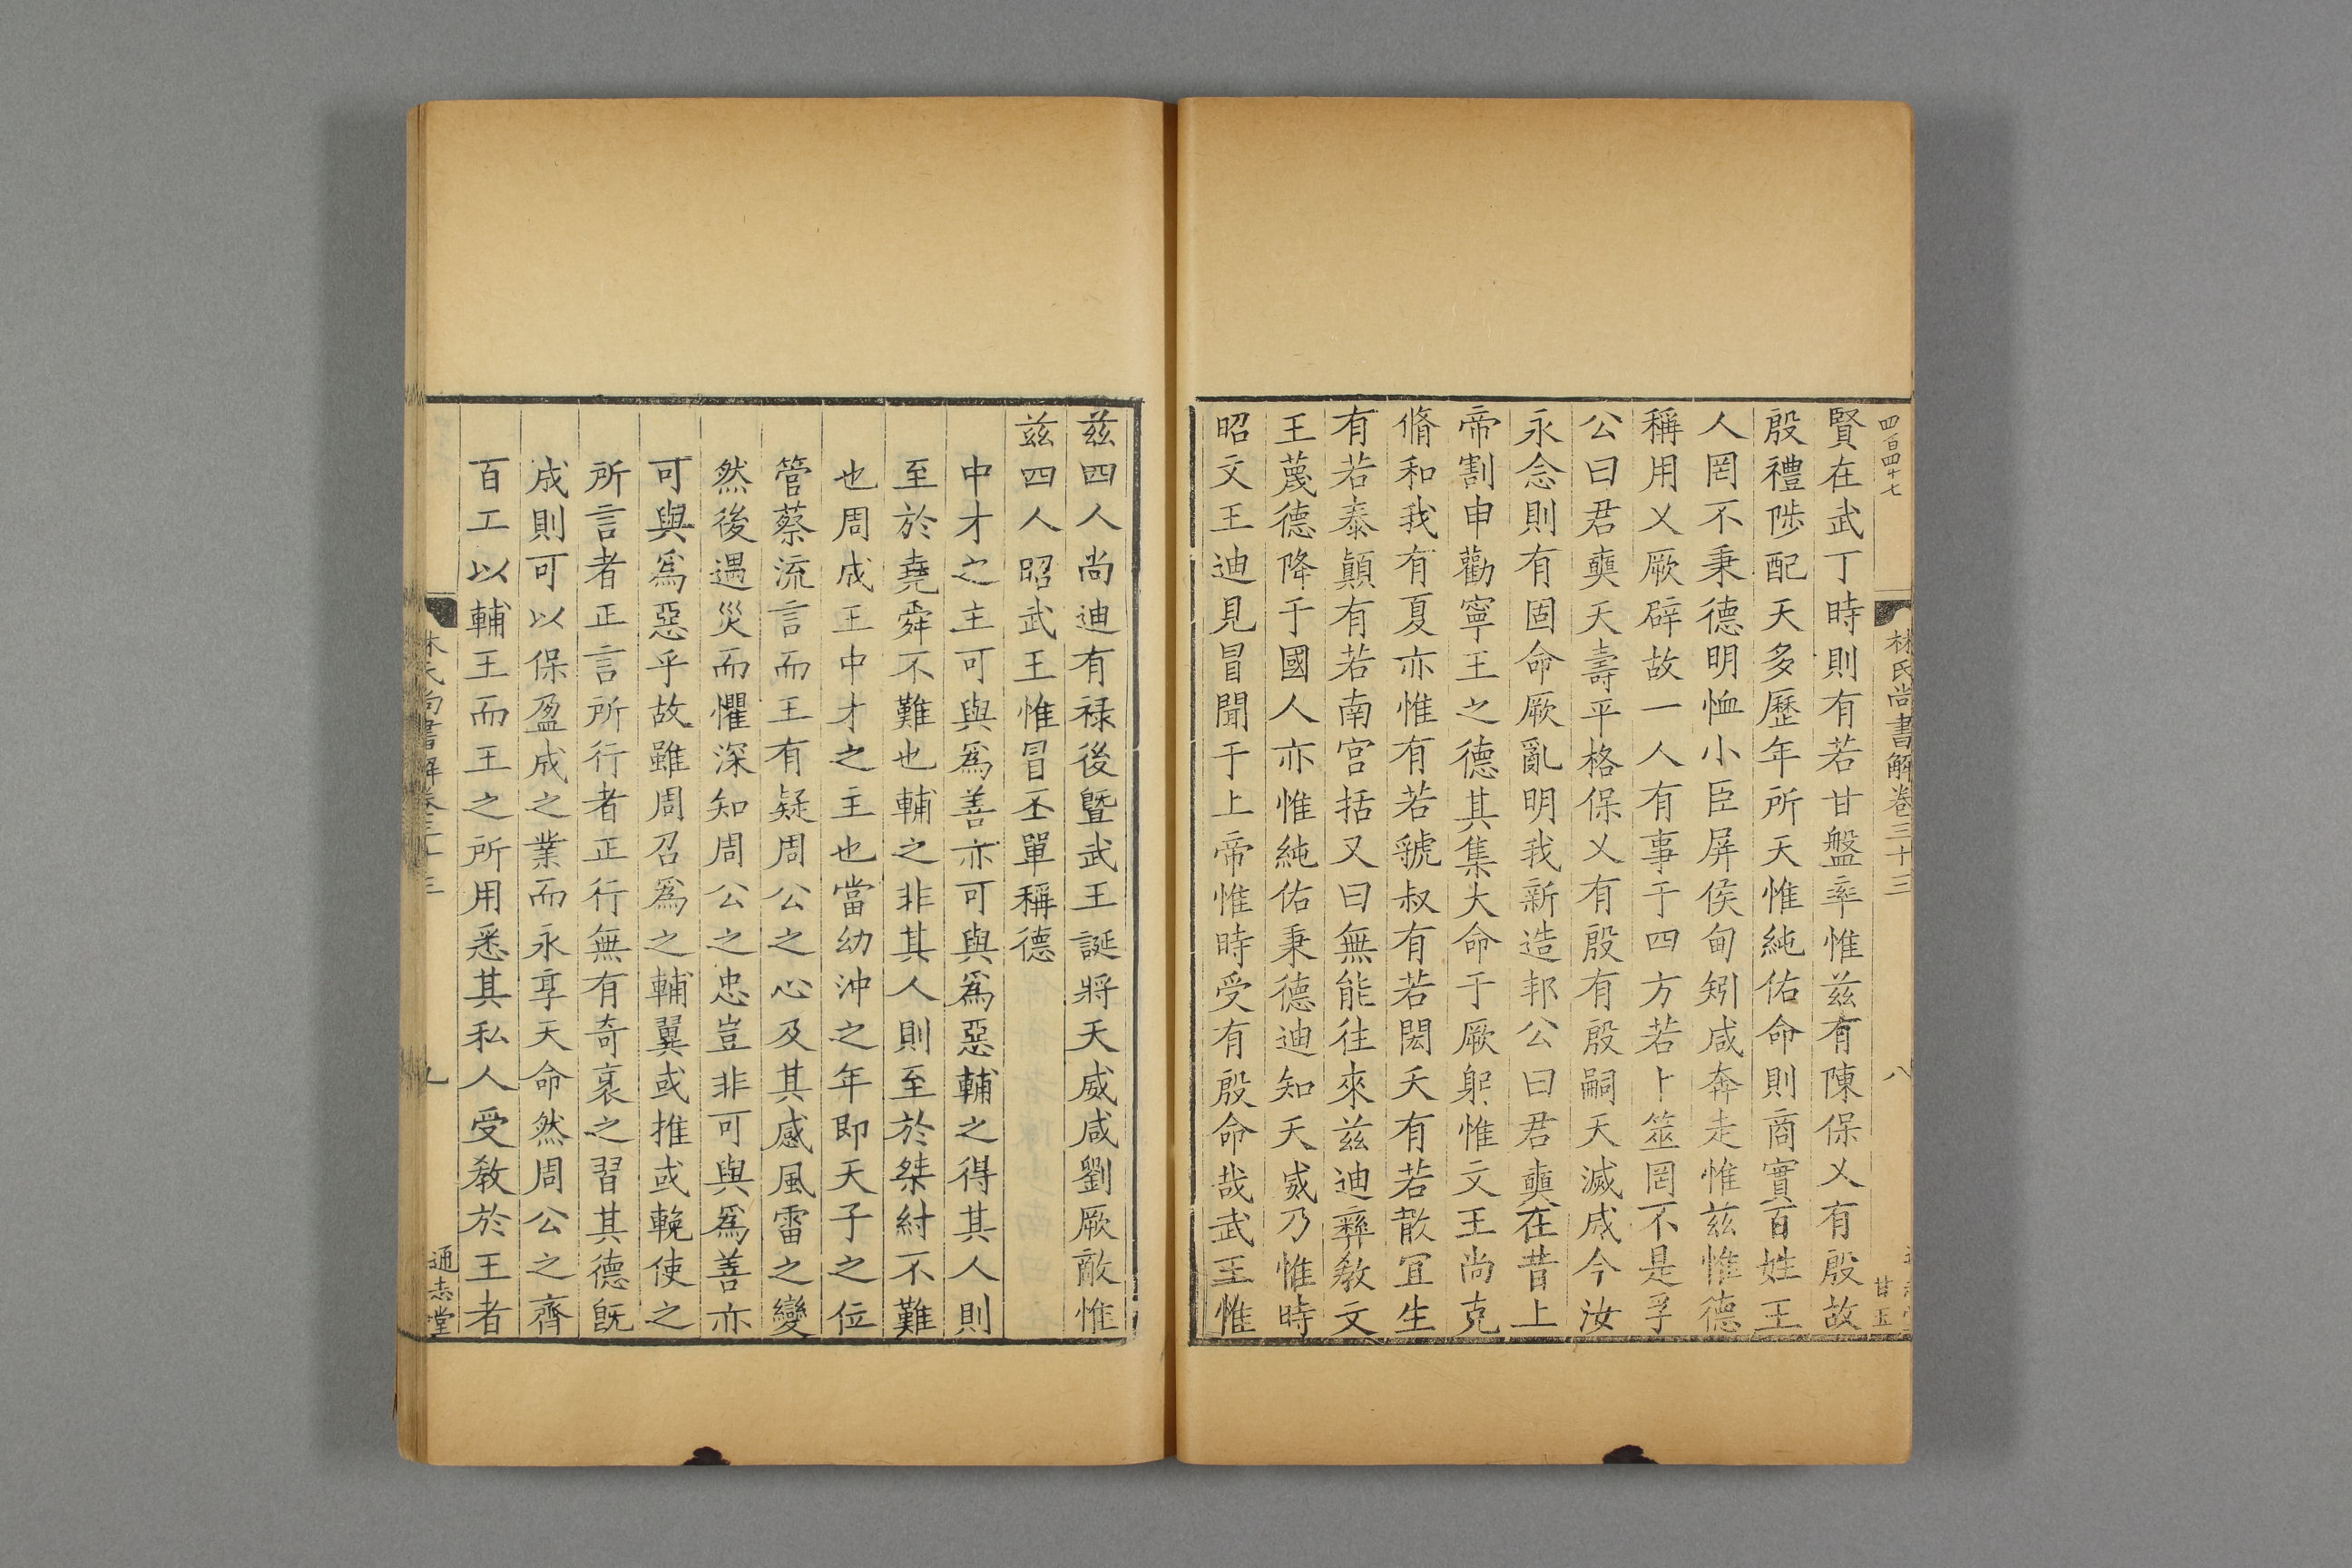 四百四十七
林氏尚書解卷三十三
八
甘五
賢在武丁時則有若甘盤率惟兹有陳保乂有殷故
殷禮陟配天多歷年所天惟純佑命則商實百姓王
人罔不秉德明恤小臣屏侯甸矧咸奔走惟兹惟德
稱用乂厥辟故一人有事于四方若卜筮罔不是孚
公曰君奭天壽平格保乂有殷有殷嗣天滅威今汝
永念則有固命厥亂明我新造邦公曰君奭在昔上
帝割申勸寧王之德其集大命于厥躬惟文王尚克
脩和我有夏亦惟有若虢叔有若閎夭有若散宜生
有若泰顚有若南宫括又曰無能往來兹迪彝教文
王蔑德降于國人亦惟純佑秉德迪知天威乃惟時
昭文王迪見冒聞于上帝惟時受有殷命哉武王惟
兹四人尚迪有禄後曁武王誕將天威咸劉厥敵惟
兹四人昭武王惟冒丕單稱德
中才之主可與爲善亦可與爲惡輔之得其人則
至於堯舜不難也輔之非其人則至於桀紂不難
也周成王中才之主也當幼沖之年即天子之位
管蔡流言而王有疑周公之心及其感風雷之變
然後遇災而懼深知周公之忠豈非可與爲善亦
可與爲惡乎故雖周召爲之輔翼或推或輓使之
所言者正言所行者正行無有奇衺之習其德旣
成則可以保盈成之業而永享天命然周公之齊
百工以輔王而王之所用悉其私人受教於王者
林氏尚書解卷三十三
九
通志堂